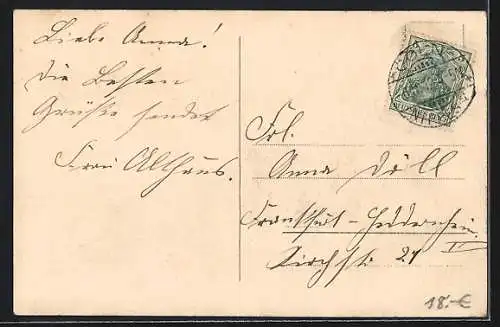 Liebe Anna!
Die Besten
Grüße sendet
Frau Althaus.
Frl.
Anna Döll
Frankfurt-Heddernheim
Kirchstr 21 II
18.-€